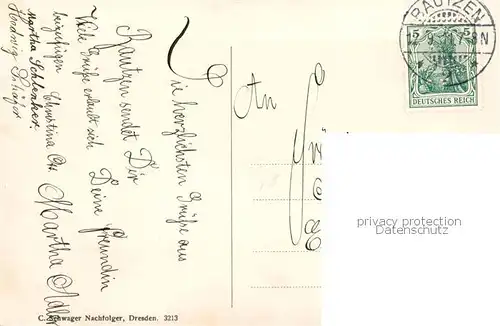 Die herzlichsten Grüße aus
Bautzen sendet Dir
Deine Freundin
Martha Adler
Viele Grüße erlaubt sich
beizufügen Christina
Martha Schlenker.
Hedwig Schäfer
An
BAUTZEN
8N
5 5
DEUTSCHES REICH
privacy protection
Datenschutz
C. Schwager Nachfolger, Dresden. 3213